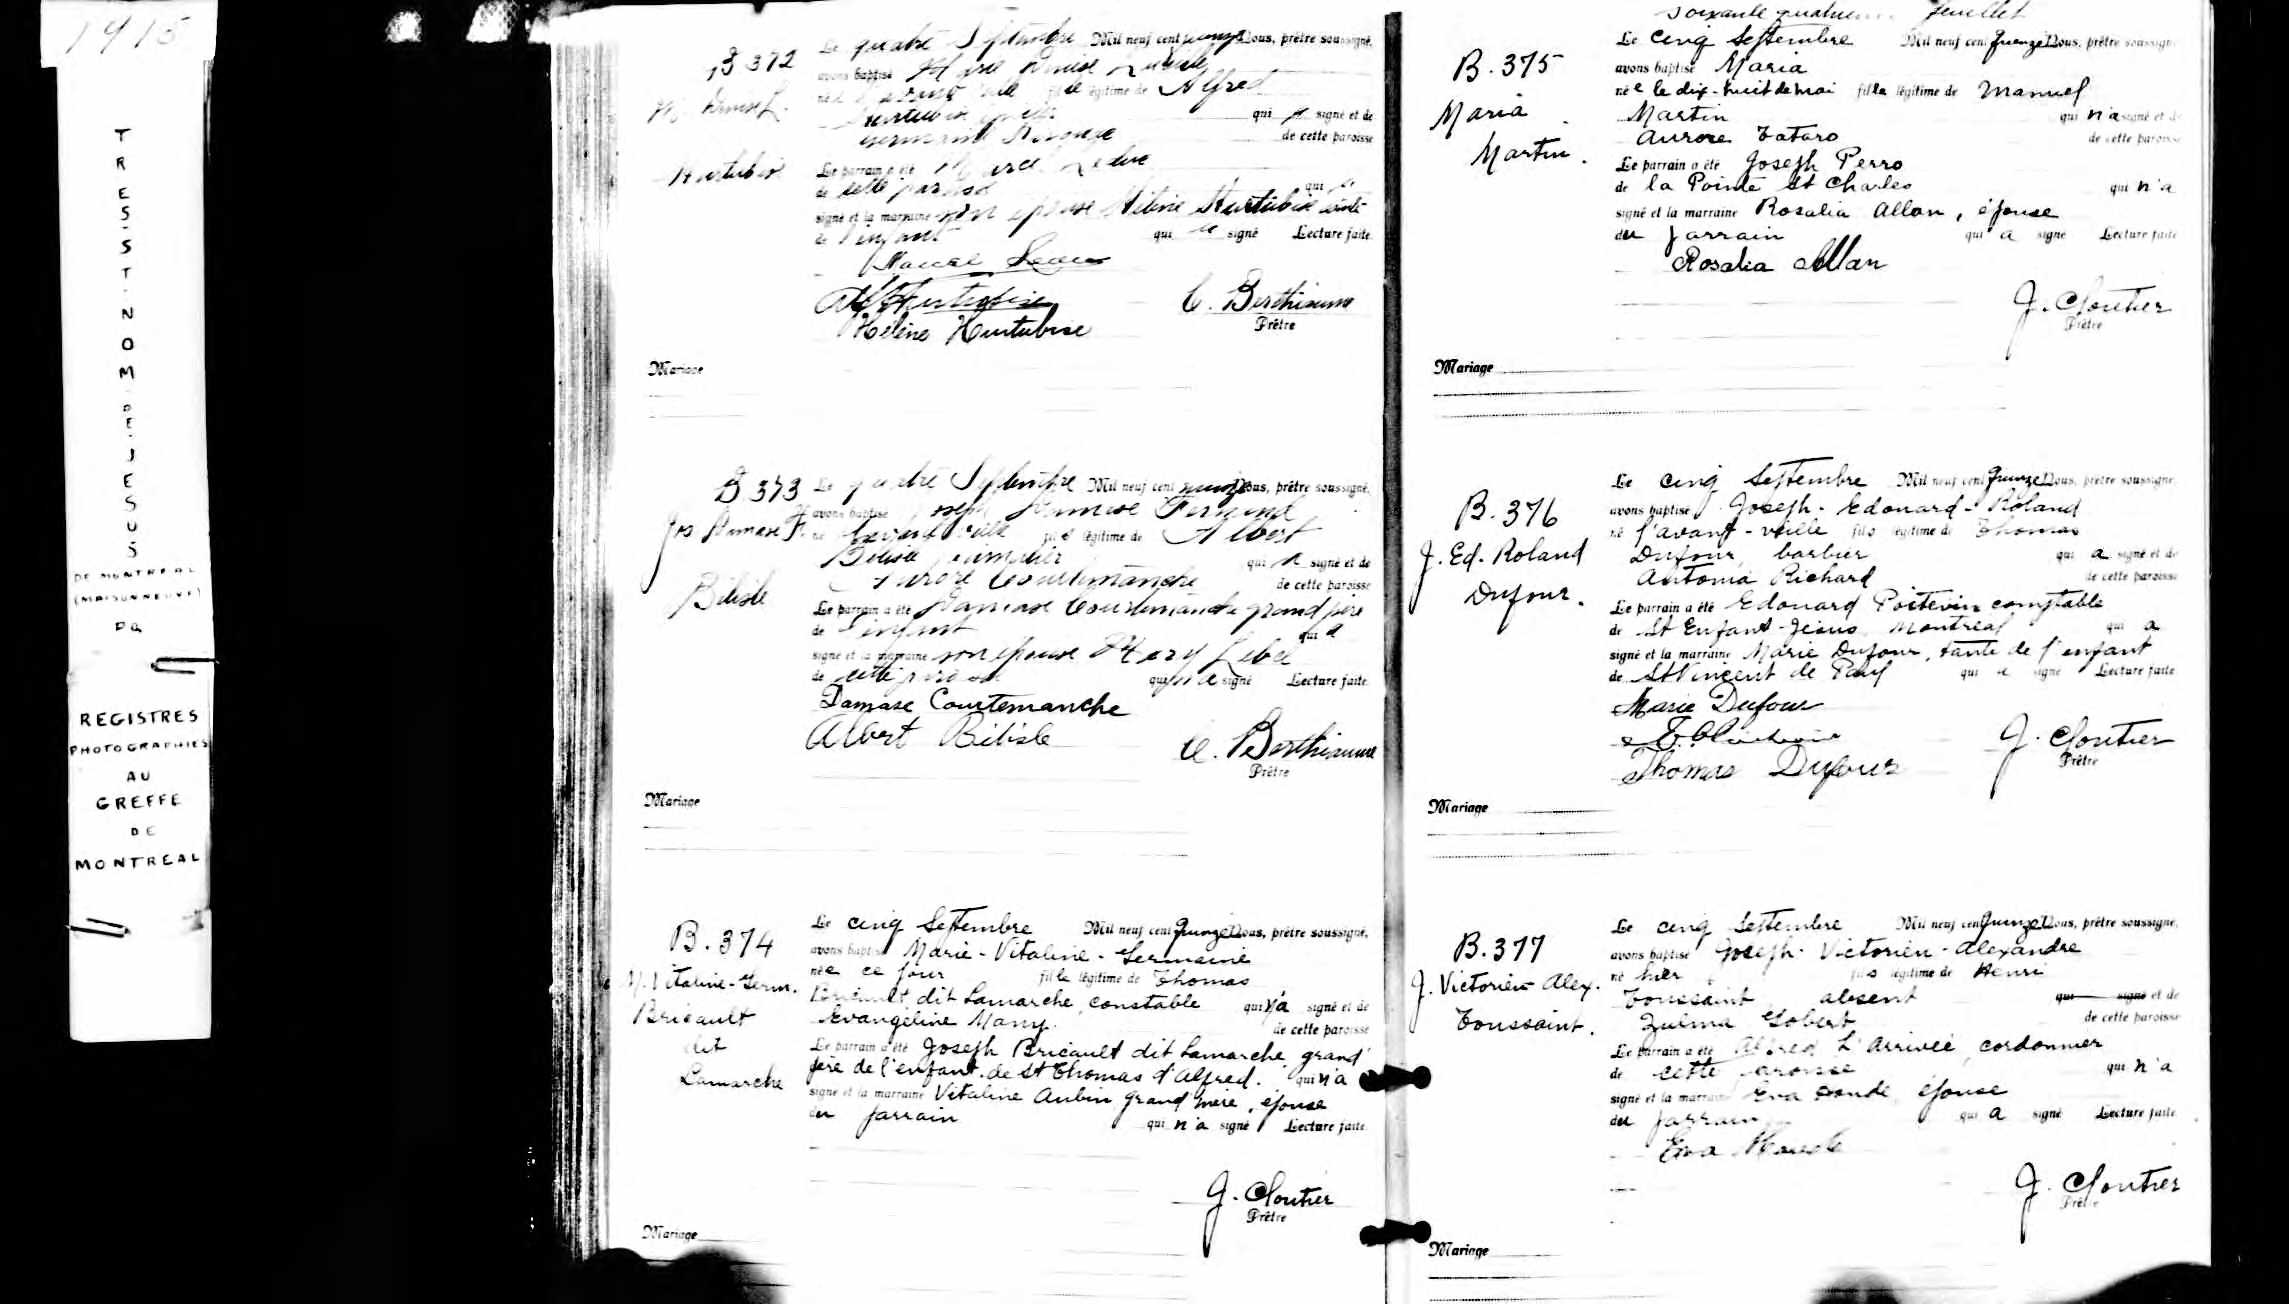 1915
TRES-ST-NOM-DE-JESUS
DE MONTREAL
(MAISONNEUVE)
REGISTRES
PHOTOGRAPHIES
AU
GREFFE
DE
MONTREAL
B 372
Hurtubise
Le quatre Septembre Mil neuf cent quinze Nous, prêtre soussigné,
avons baptisé
légitime de Alfred
qui signé et de
de cette paroisse
Le parrain a été
de cette paroisse qui
signé et la marraine son épouse Hélène Hurtubise tante
de l'enfant qui a signé Lecture faite
Hélène Hurtubise
C. Berthiaume
Prêtre
Mariage
B 373
Jos Damase F.
Bélisle
Le quatre Septembre Mil neuf cent quinze Nous, prêtre soussigné,
avons baptisé Joseph Damase Fernand
né l'avant veille fils légitime de Albert
Bélisle qui a signé et de
Aurore Courtemanche de cette paroisse
Le parrain a été Damase Courtemanche grand père
de l'enfant qui a
signé et la marraine son épouse Mary Lebel
de cette paroisse qui n'a signé Lecture faite
Damase Courtemanche
Albert Bélisle
C. Berthiaume
Prêtre
Mariage
B. 374
M. Vitaline-Germ.
Bricault
dit
Lamarche
Le cinq Septembre Mil neuf cent quinze Nous, prêtre soussigné,
avons baptisé Marie-Vitaline-Germaine
née ce jour fille légitime de Thomas
Bricault dit Lamarche, constable qui n'a signé et de
Evangéline Many de cette paroisse
Le parrain a été Joseph Bricault dit Lamarche grand
père de l'enfant de St Thomas d'Alfred. qui n'a
signé et la marraine Vitaline Aubin grand'mère, épouse
du parrain qui n'a signé Lecture faite
J. Cloutier
Prêtre
Mariage
soixante quatrième feuillet
B. 375
Maria
Martin.
Le cinq Septembre Mil neuf cent quinze Nous, prêtre soussigné
avons baptisé Maria
née le dix-huit de mai fille légitime de Manuel
Martin qui n'a signé et de
Aurore Tataro de cette paroisse
Le parrain a été Joseph Perro
de la Pointe St Charles qui n'a
signé et la marraine Rosalia Allan, épouse
du parrain qui a signé Lecture faite
Rosalia Allan
J. Cloutier
Prêtre
Mariage
B. 376
J. Ed. Roland
Dufour.
Le cinq Septembre Mil neuf cent quinze Nous, prêtre soussigné
avons baptisé Joseph-Edouard-Roland
né l'avant-veille fils légitime de Thomas
Dufour, barbier qui a signé et de
Antonia Richard de cette paroisse
Le parrain a été Edouard Poitevin comptable
de St Enfant-Jésus Montréal qui a
signé et la marraine Marie Dufour, tante de l'enfant
de St Vincent de Paul qui a signé Lecture faite
Marie Dufour
Thomas Dufour
J. Cloutier
Prêtre
Mariage
B. 377
J. Victorien Alex.
Toussaint.
Le cinq Septembre Mil neuf cent quinze Nous, prêtre soussigné,
avons baptisé Joseph-Victorien-Alexandre
né hier fils légitime de Henri
Toussaint absent qui signé et de
Zulma Gobert de cette paroisse
Le parrain a été Alfred L'Arrivée, cordonnier
de cette paroisse qui n'a
signé et la marraine Eva épouse
du parrain qui a signé Lecture faite
Eva
J. Cloutier
Prêtre
Mariage